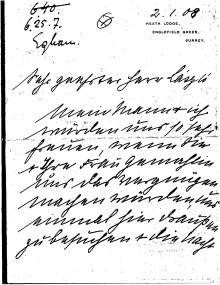 640.
6.25.7
Egham.
2.1.08
HEATH LODGE,
ENGLEFIELD GREEN,
SURREY.
Sehr geehrter Herr
Mein Mann & ich
würden uns so sehr
freuen, wenn Sie
& Ihre Frau Gemahlin
uns das Vergnügen
machen würden uns
einmal hier draußen
zu besuchen & die